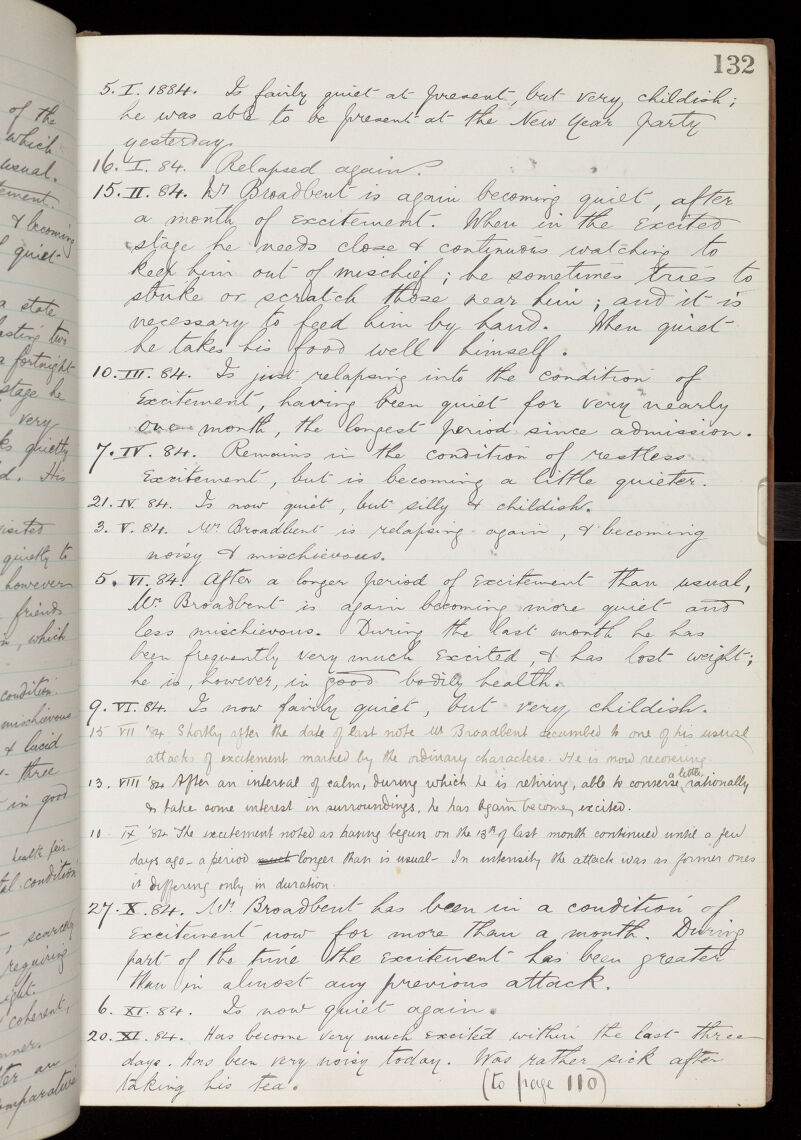 132
5. I. 1884. Is fairly quiet at present, but very childish;
he was able to be present at the New Year party
yesterday.
16. I. 84. Relapsed again.
15. II. 84. Mr Broadbent is again becoming quiet, after
a month of excitement. When in the excited
stage he needs close & continuous watching to
keep him out of mischief; he sometimes tries to
strike or scratch those near him; and it is
necessary to feed him by hand. When quiet
he takes his food well himself.
10. III. 84. Is just relapsing into the condition of
Excitement, having been quiet for very nearly
one month, the longest period since admission.
7. IV. 84. Remains in the condition of restless
Excitement, but is becoming a little quieter.
21. IV. 84. Is now quiet, but silly & childish.
3. V. 84. Mr Broadbent is relapsing again, & becoming
noisy & mischievous.
5. VI. 84. After a longer period of Excitement than usual,
Mr Broadbent is again becoming more quiet and
less mischievous. During the last month he has
been frequently very much Excited, & has lost weight;
he is, however, in good bodily health.
9. VI. 84. Is now fairly quiet, but very childish.
15 VII '84 Shortly after the date of last note Mr Broadbent succumbed to one of his usual
attacks of excitement marked by the ordinary characters. He is now recovering
13. VIII '84 After an interval of calm, during which he is retiring, able to converse a little rationally
& take some interest in surroundings, he has again become excited.
10 IX '84 The excitement noted as having begun on the 13th of last month continued until a few
days ago - a period much longer than is usual - In intensity the attack was as former ones
it differing only in duration.
27. X. 84. Mr Broadbent has been in a condition of
Excitement now for more than a month. During
part of the time the Excitement has been greater
than in almost any previous attack.
6. XI. 84. Is now quiet again.
20. XI. 84. Has become very much Excited within the last three
days. Has been very noisy today. Was rather sick after
taking his tea.
(to page 110)
of the
which
usual.
& becoming
quiet
a state
lasting two
a fortnight
stage he
very
quietly
d. His
quietly to
however
friends
which
condition.
mischievous
& lucid
three
in good
health fair.
condition
scarcely
requiring
coherent,
an